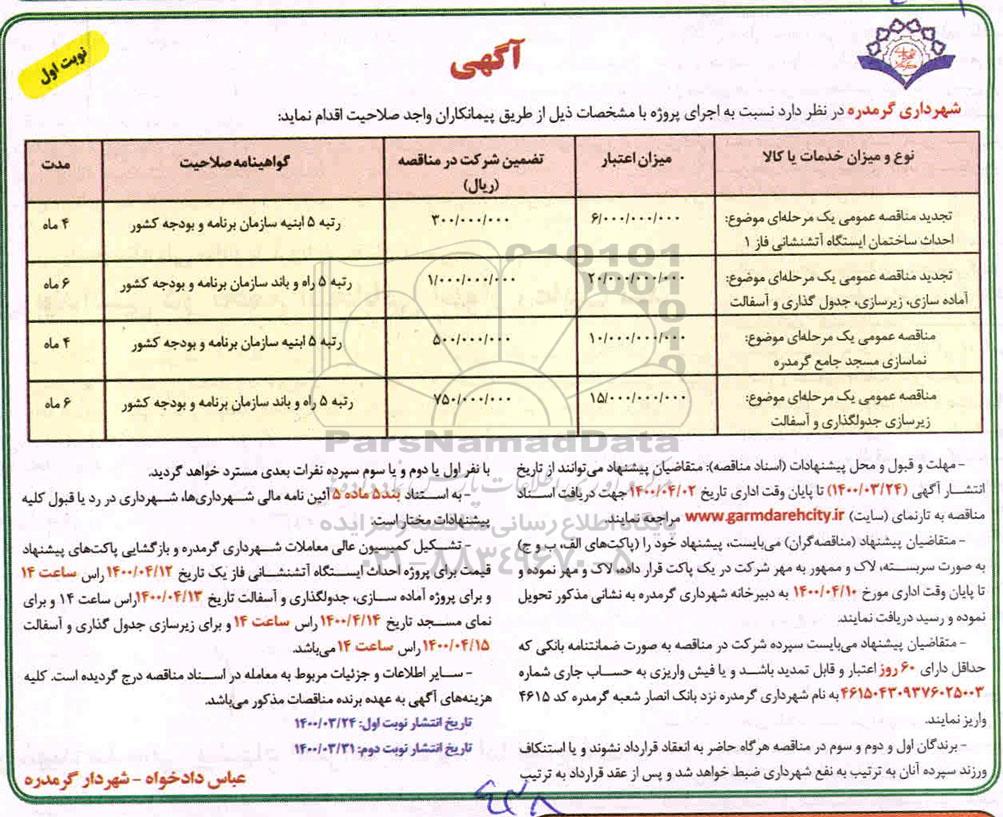 نوبت اول
آگهی
شهرداری گرمدره در نظر دارد نسبت به اجرای پروژه با مشخصات ذیل از طریق پیمانکاران واجد صلاحیت اقدام نماید:
نوع و میزان خدمات یا کالا
میزان اعتبار
تضمین شرکت در مناقصه
(ریال)
گواهینامه صلاحیت
مدت
تجدید مناقصه عمومی یک مرحله‌ای موضوع:
احداث ساختمان ایستگاه آتشنشانی فاز ۱
۶/۰۰۰/۰۰۰/۰۰۰
۳۰۰/۰۰۰/۰۰۰
رتبه ۵ ابنیه سازمان برنامه و بودجه کشور
۴ ماه
تجدید مناقصه عمومی یک مرحله‌ای موضوع:
آماده سازی، زیرسازی، جدول گذاری و آسفالت
۲۰/۰۰۰/۰۰۰/۰۰۰
۱/۰۰۰/۰۰۰/۰۰۰
رتبه ۵ راه و باند سازمان برنامه و بودجه کشور
۶ ماه
مناقصه عمومی یک مرحله‌ای موضوع:
نماسازی مسجد جامع گرمدره
۱۰/۰۰۰/۰۰۰/۰۰۰
۵۰۰/۰۰۰/۰۰۰
رتبه ۵ ابنیه سازمان برنامه و بودجه کشور
۴ ماه
مناقصه عمومی یک مرحله‌ای موضوع:
زیرسازی جدولگذاری و آسفالت
۱۵/۰۰۰/۰۰۰/۰۰۰
۷۵۰/۰۰۰/۰۰۰
رتبه ۵ راه و باند سازمان برنامه و بودجه کشور
۶ ماه
ParsNamadData
- مهلت و قبول و محل پیشنهادات (اسناد مناقصه): متقاضیان پیشنهاد می‌توانند از تاریخ
انتشار آگهی (۱۴۰۰/۰۳/۲۴) تا پایان وقت اداری تاریخ ۱۴۰۰/۰۴/۰۲ جهت دریافت اسناد
مناقصه به تارنمای (سایت) www.garmdarehcity.ir مراجعه نمایند.
- متقاضیان پیشنهاد (مناقصه‌گران) می‌بایست، پیشنهاد خود را (پاکت‌های الف، ب و ج)
به صورت سربسته، لاک و ممهور به مهر شرکت در یک پاکت قرار داده، لاک و مهر نموده و
تا پایان وقت اداری مورخ ۱۴۰۰/۰۴/۱۰ به دبیرخانه شهرداری گرمدره به نشانی مذکور تحویل
نموده و رسید دریافت نمایند.
- متقاضیان پیشنهاد می‌بایست سپرده شرکت در مناقصه به صورت ضمانتنامه بانکی که
حداقل دارای ۶۰ روز اعتبار و قابل تمدید باشد و یا فیش واریزی به حساب جاری شماره
۴۶۱۵۰۴۳۰۹۳۷۶۰۲۵۰۰۳ به نام شهرداری گرمدره نزد بانک انصار شعبه گرمدره کد ۴۶۱۵
واریز نمایند.
- برندگان اول و دوم و سوم در مناقصه هرگاه حاضر به انعقاد قرارداد نشوند و یا استنکاف
ورزند سپرده آنان به ترتیب به نفع شهرداری ضبط خواهد شد و پس از عقد قرارداد به ترتیب
با نفر اول یا دوم و یا سوم سپرده نفرات بعدی مسترد خواهد گردید.
- به استناد بند ۵ ماده ۵ آئین نامه مالی شهرداری‌ها، شهرداری در رد یا قبول کلیه
پیشنهادات مختار است.
- تشکیل کمیسیون عالی معاملات شهرداری گرمدره و بازگشایی پاکت‌های پیشنهاد
قیمت برای پروژه احداث ایستگاه آتشنشانی فاز یک تاریخ ۱۴۰۰/۰۴/۱۲ راس ساعت ۱۴
و برای پروژه آماده سازی، جدولگذاری و آسفالت تاریخ ۱۴۰۰/۰۴/۱۳ راس ساعت ۱۴ و برای
نمای مسجد تاریخ ۱۴۰۰/۴/۱۴ راس ساعت ۱۴ و برای زیرسازی جدول گذاری و آسفالت
۱۴۰۰/۰۴/۱۵ راس ساعت ۱۴ می‌باشد.
- سایر اطلاعات و جزئیات مربوط به معامله در اسناد مناقصه درج گردیده است. کلیه
هزینه‌های آگهی به عهده برنده مناقصات مذکور می‌باشد.
تاریخ انتشار نوبت اول: ۱۴۰۰/۰۳/۲۴
تاریخ انتشار نوبت دوم: ۱۴۰۰/۰۳/۳۱
عباس دادخواه - شهردار گرمدره
پایگاه اطلاع رسانی مناقصه و مزایده
۰۲۱-۸۸۳۴۹۶۷۰-۵